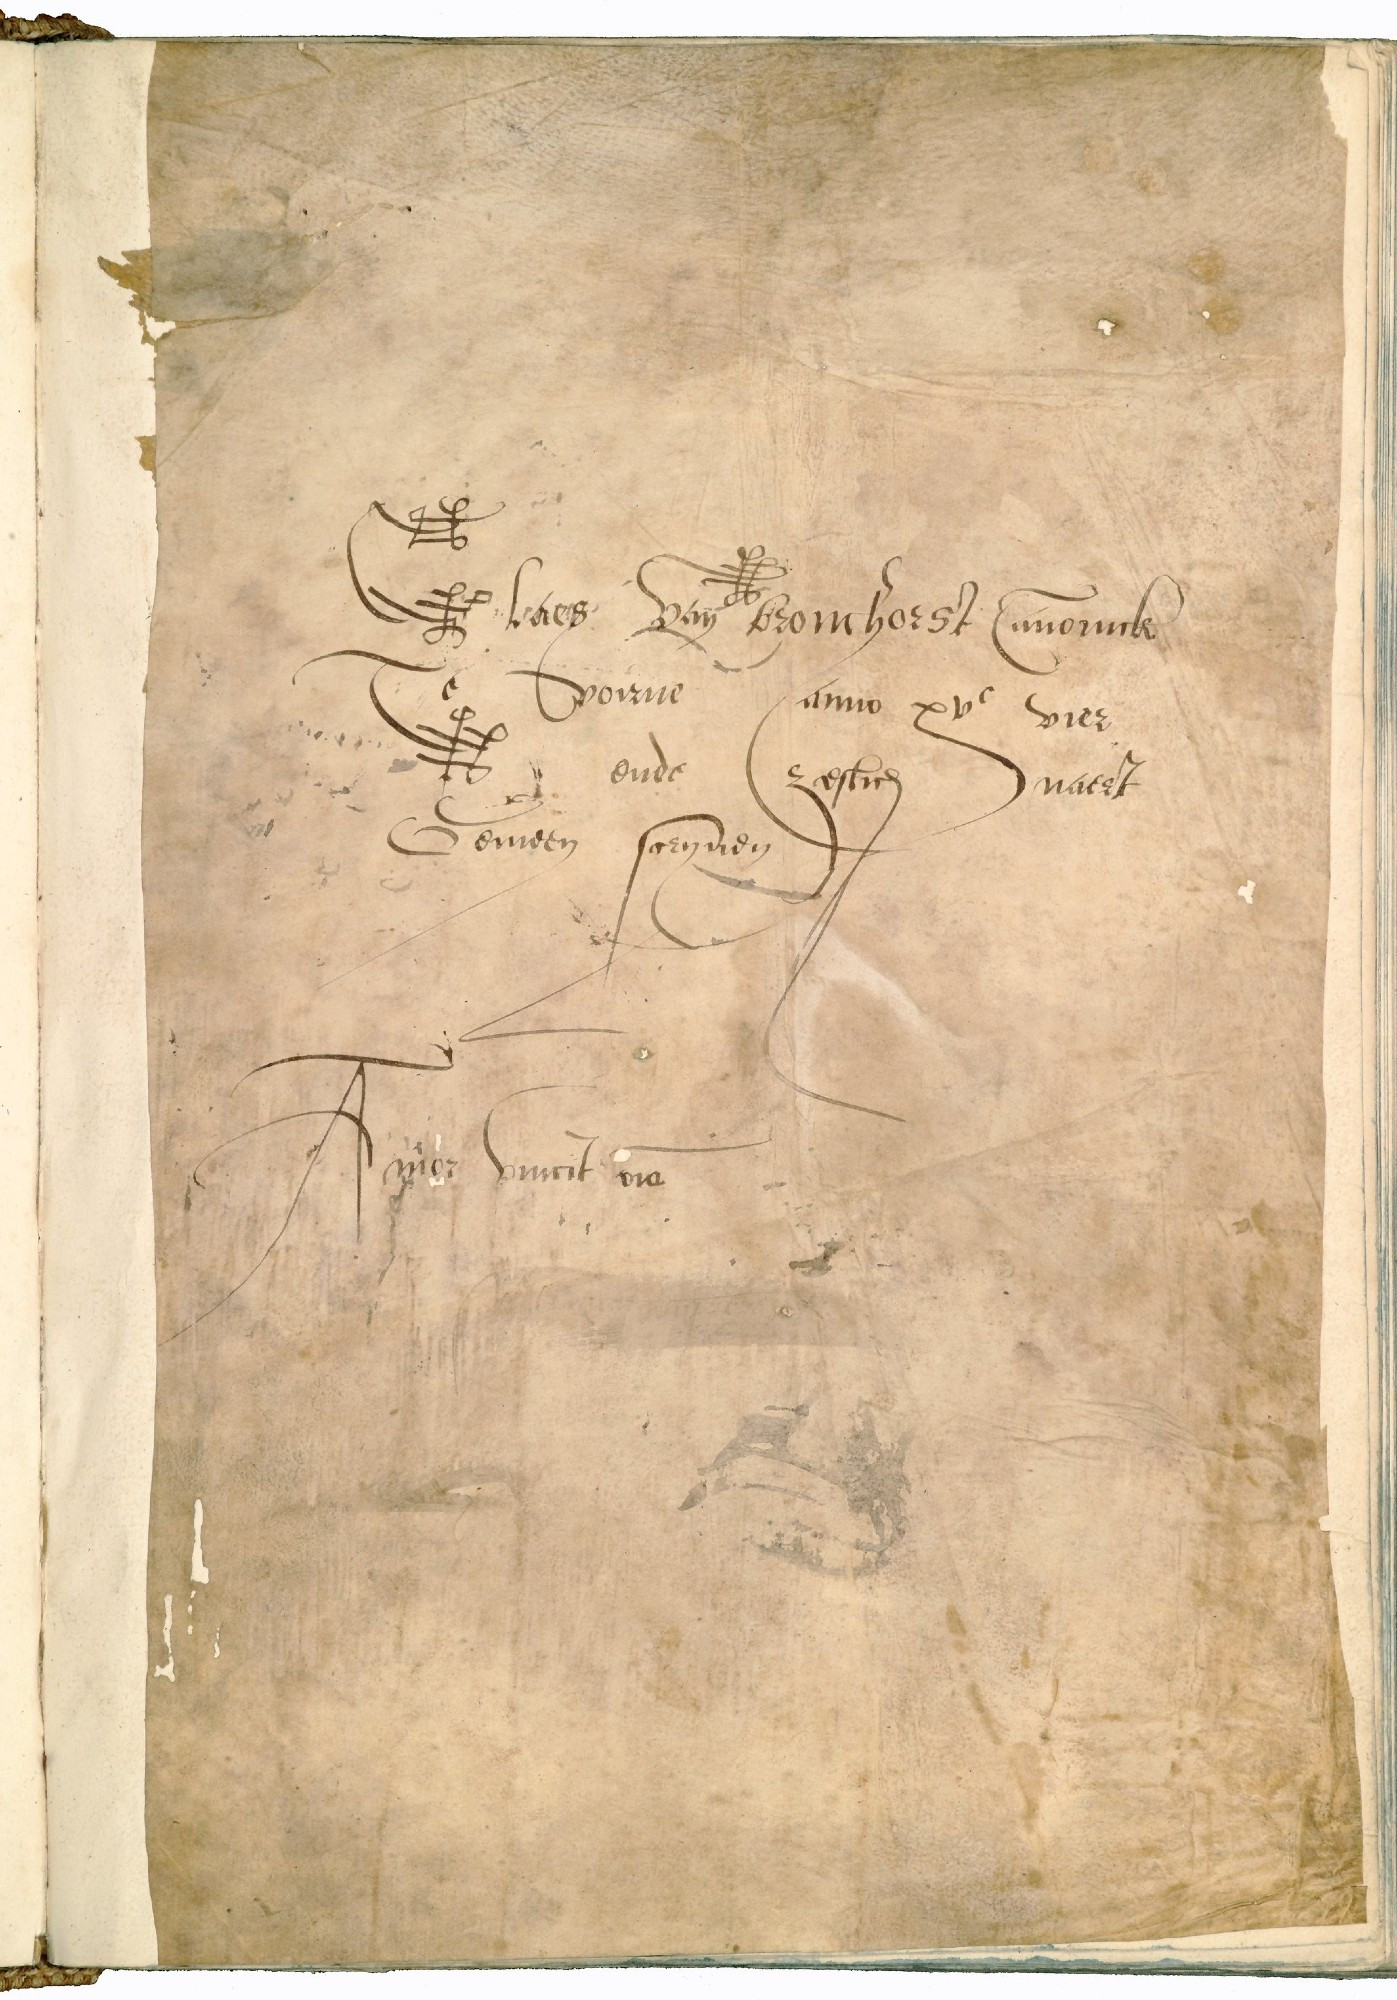 Claes van bronchorst Canonick
Te voirne anno xvc vier
ende zestich naer
Gemeen scryven
Amor vincit oia